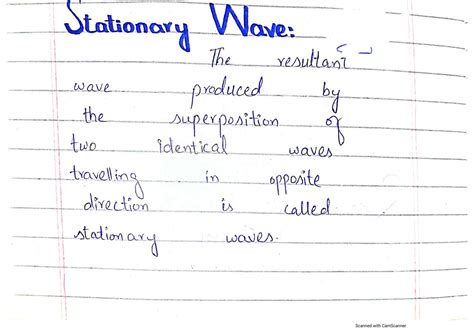 Stationary Wave:
The resultant
wave produced by
the superposition of
two identical waves
travelling in opposite
direction is called
stationary waves.
Scanned with CamScanner